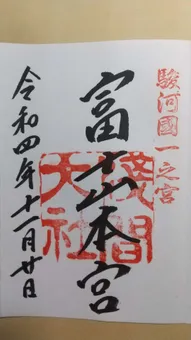 駿河國一之宮
富士山本宮
淺間大社
令和四年十一月廿日